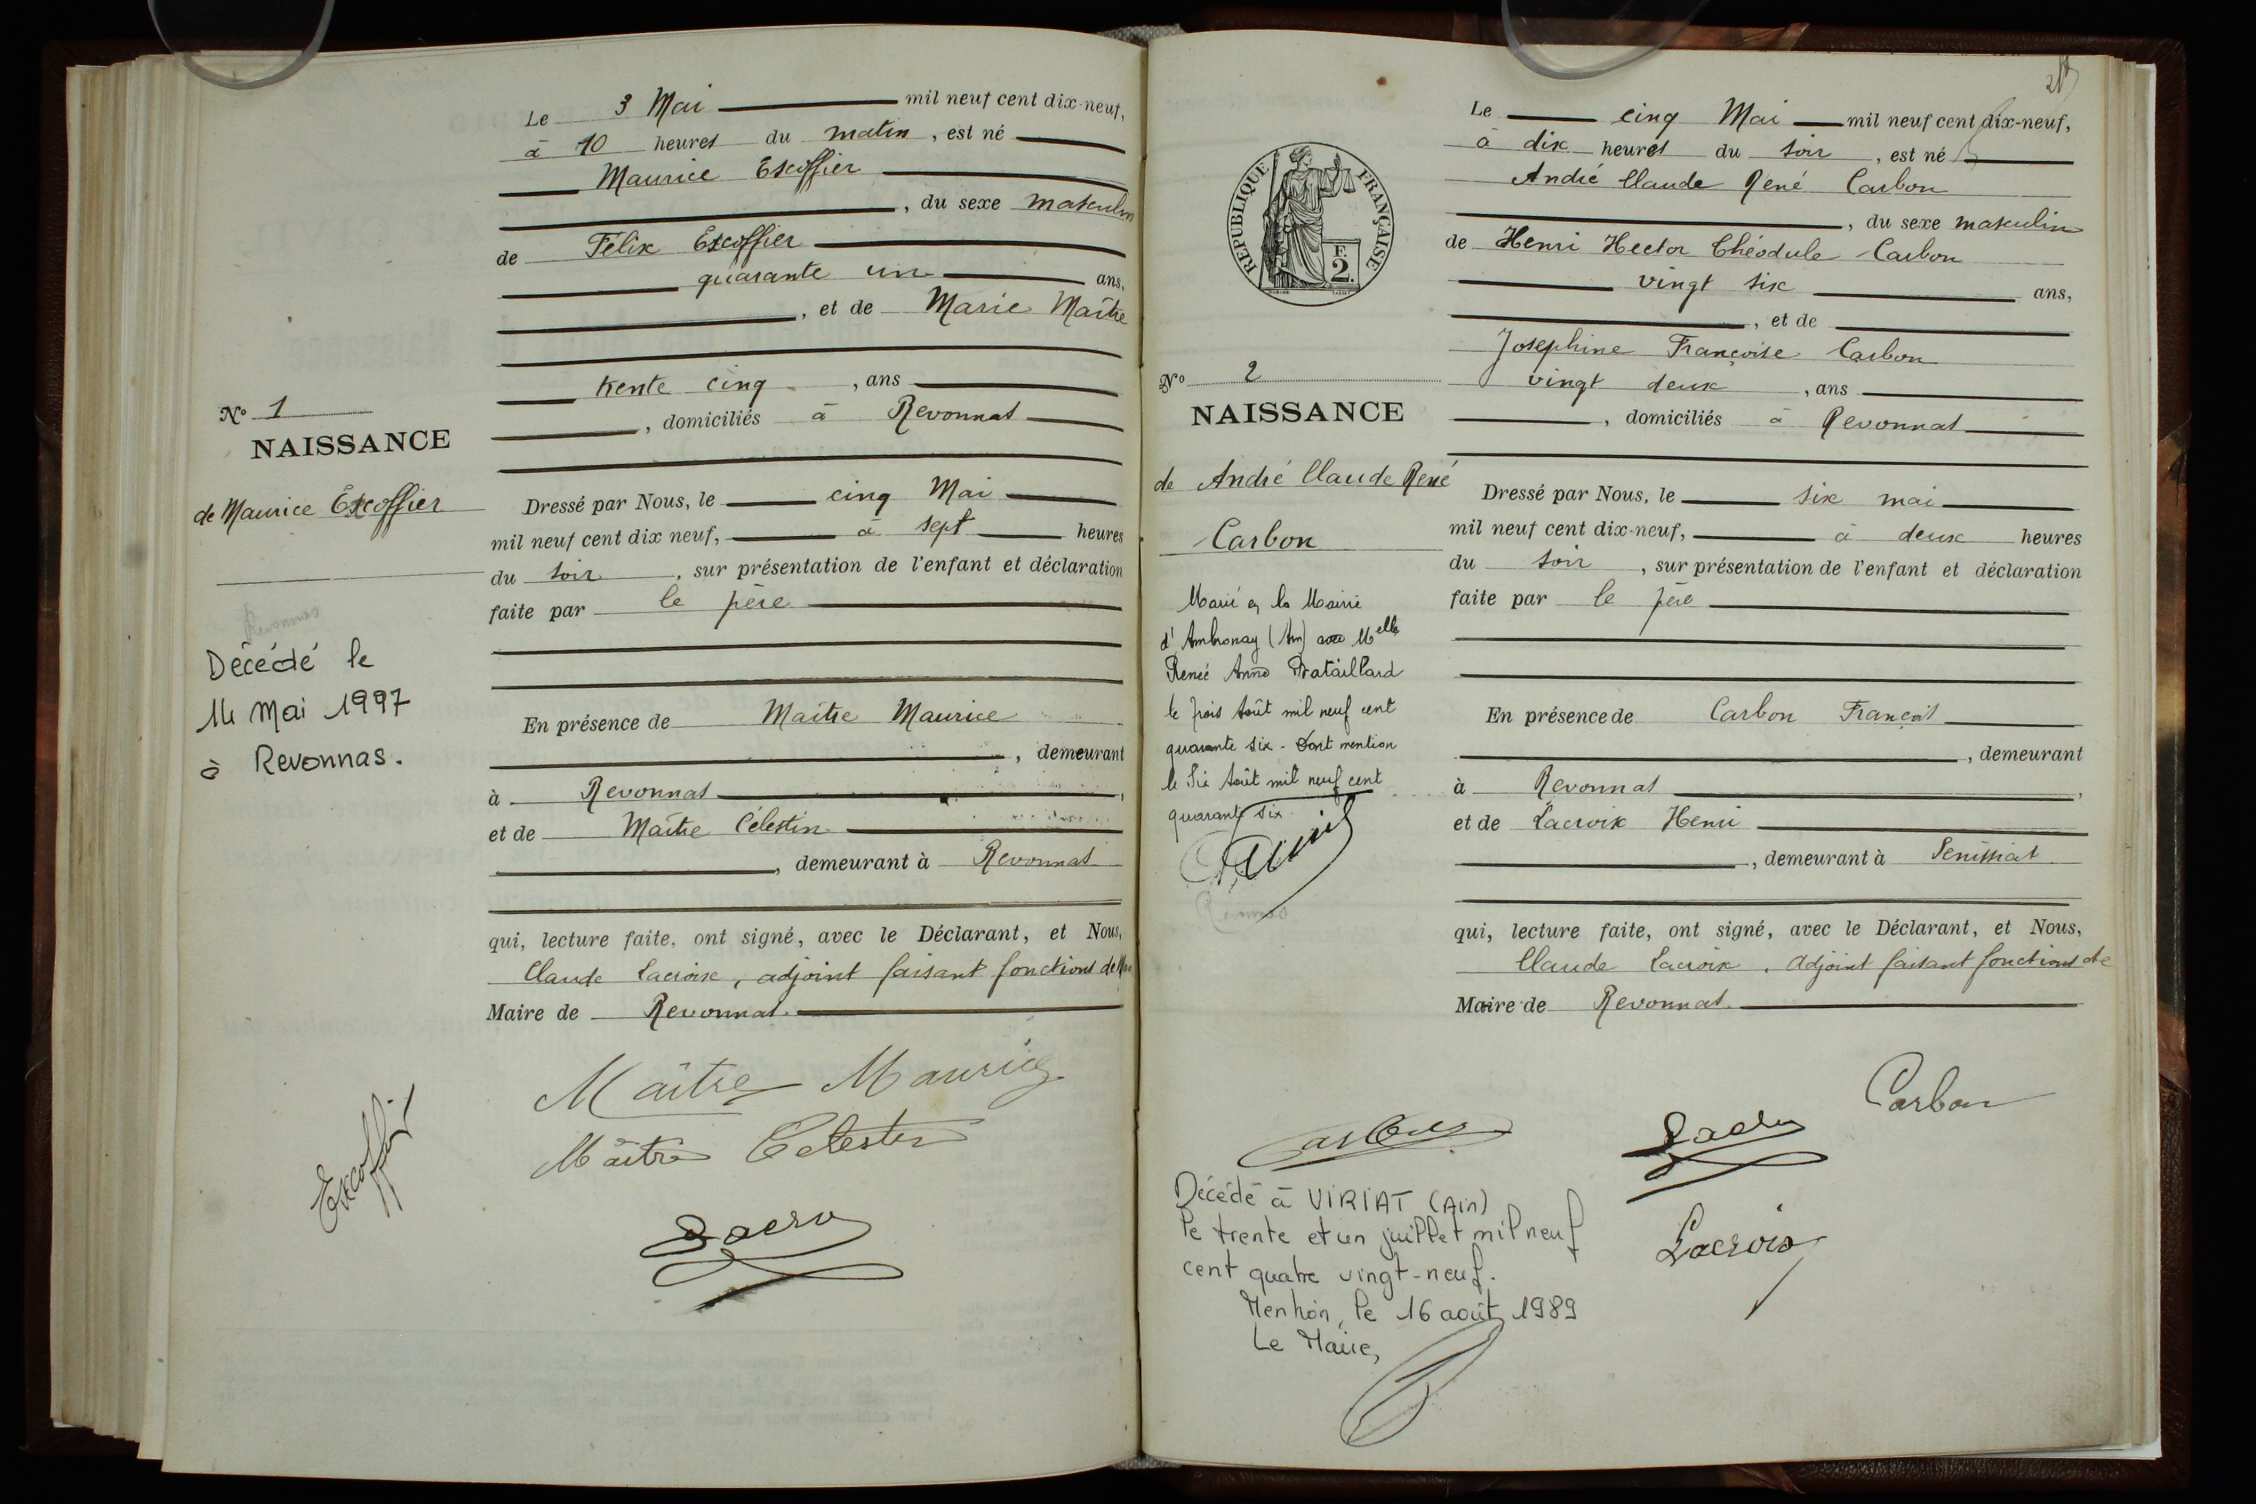 Le 3 Mai mil neuf cent dix-neuf,
à 10 heures du matin, est né
Maurice Escoffier
, du sexe masculin
de Félix Escoffier
quarante un ans,
, et de Marie Maître
trente cinq, ans
, domiciliés à Revonnas
Nº 1
NAISSANCE
de Maurice Escoffier
Décédé le
14 Mai 1997
à Revonnas.
Dressé par Nous, le cinq Mai
mil neuf cent dix neuf, à sept heures
du soir, sur présentation de l'enfant et déclaration
faite par le père
En présence de Maître Maurice
, demeurant
à Revonnas,
et de Maître Célestin
, demeurant à Revonnas
qui, lecture faite, ont signé, avec le Déclarant, et Nous,
Claude Lacroix, adjoint faisant fonctions de
Maire de Revonnas.
Maître Maurice
Maître Célestin
Escoffier
Le cinq Mai mil neuf cent dix-neuf,
à dix heures du soir, est né
André Claude René Carbon
, du sexe masculin
de Henri Hector Théodule Carbon
vingt six ans,
, et de
Josephine Françoise Carbon
vingt deux, ans
, domiciliés à Revonnas
RÉPUBLIQUE FRANÇAISE
F.
2.
Nº 2
NAISSANCE
de André Claude René
Carbon
Marié en la Mairie
d'Ambronay (Ain) avec Melle
Renée Anna Bataillard
le trois Août mil neuf cent
quarante six - Dont mention
le Six Août mil neuf cent
quarante six.
Dressé par Nous, le six mai
mil neuf cent dix-neuf, à deux heures
du soir, sur présentation de l'enfant et déclaration
faite par le père
En présence de Carbon François
, demeurant
à Revonnas,
et de Lacroix Henri
, demeurant à Senissiat
qui, lecture faite, ont signé, avec le Déclarant, et Nous,
Claude Lacroix, adjoint faisant fonctions de
Maire de Revonnas.
Carbon
Carbon
Lacroix
Décédé à VIRIAT (Ain)
le trente et un juillet mil neuf
cent quatre vingt-neuf.
Mention, le 16 août 1989
Le Maire,